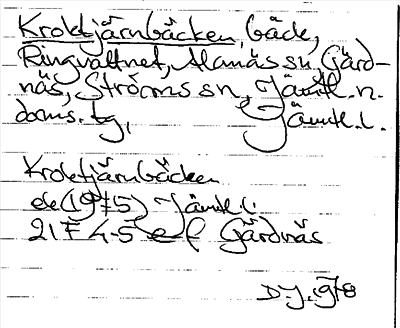 Kroktjärnbäcken, bäck,
Ringvattnet, Alanäs sn, Gärd-
näs, Ströms sn, Jämtl. n.
doms. tg, Jämtl. l.
Kroktjärnbäcken
ek (1975) Jämtl. l.
21 F 4-5 e f Gärdnäs
D.J. 1978